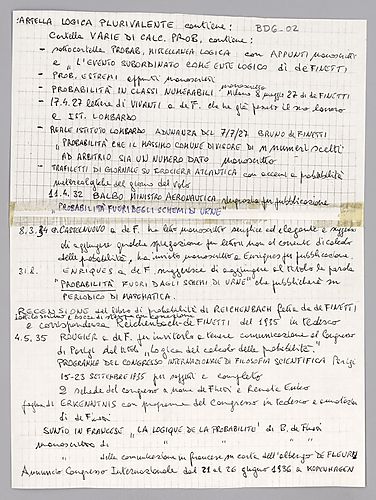 CARTELLA LOGICA PLURIVALENTE contiene: BDG_02
Cartella VARIE DI CALC. PROB. contiene:
- sottocartella PROBAB. MISCELLANEA LOGICA con APPUNTI manoscritti
e "L'EVENTO SUBORDINATO COME ENTE LOGICO di de FINETTI
- PROB. ESTREMI appunti manoscritti
- PROBABILITÀ IN CLASSI NUMERABILI manoscritto Milano 8 maggio 27 di de FINETTI
- 17.4.27 lettera di VIVANTI a de F. che ha già pres il suo lavoro
e IST. LOMBARDO
- REALE ISTITUTO LOMBARDO ADUNANZA DEL 7/7/27. BRUNO de FINETTI
"PROBABILITÀ CHE IL MASSIMO COMUNE DIVISORE DI n numeri scelti
AD ARBITRIO SIA UN NUMERO DATO manoscritto
- TRAFILETTI DI GIORNALE SU CROCIERA ATLANTICA con accenni a probabilità
meteorologiche del giorno del volo
11.4.32 BALBO MINISTRO AERONAUTICA risposta per pubblicazione
"PROBABILITÀ FUORI DEGLI SCHEMI DI URNE"
8.3.34 G. CASTELNUOVO a de F. ha letto manoscritto semplice ed elegante e suggerisce
di aggiungere qualche spiegazione per lettori non al corrente di calcolo
delle probabilità, ha inviato manoscritto a Enriques per pubblicazione
31.8. ENRIQUES a de F. suggerisce di aggiungere al titolo la parola
"PROBABILITÀ FUORI DAGLI SCHEMI DI URNE" che pubblicherà su
PERIODICO DI MATEMATICA.
RECENSIONE del libro di probabilità di REICHENBACH fatta da de FINETTI
e corrispondenza Reichenbach-de FINETTI del 1935 in tedesco
4.5.35 ROUGIER a de F. per invitarlo a tenere comunicazione al Congresso
di Parigi dal titolo "Logica del calcolo delle probabilità".
PROGRAMMA DEL CONGRESSO INTERNAZIONALE DI FILOSOFIA SCIENTIFICA Parigi
15-23 SETTEMBRE 1935 per soggetti e completo
2 schede del congresso a nome de Finetti e Renata Errico
pagine di ERKENNTNIS con programma del Congresso in tedesco e annotazioni
di de Finetti
SUNTO IN FRANCESE "LA LOGIQUE DE LA PROBABILITÉ" di B. de Finetti
manoscritto di " " "
" della comunicazione in francese su carta dell'albergo DE FLEURUS
Annuncio Congresso Internazionale dal 21 al 26 giugno 1936 a KOPENHAGEN